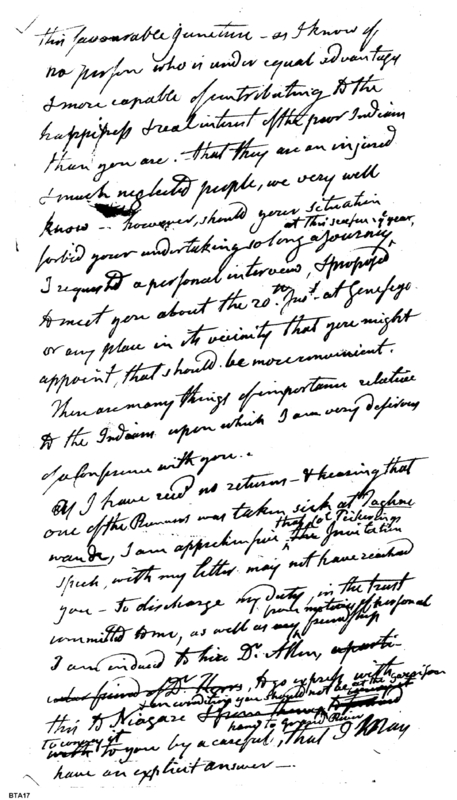 this favourable juncture - as I know of
no person who is under equal advantage
& more capable of contributing to the
happiness & real interest of the poor Indians
than you are. that they are an injured
& much neglected people, we very well
know -- however, should your situation
at this season of year,
forbid your undertaking so long a Journey
I requested a personal interview, & proposed
to meet you about the 20.th Inst. at Genesego
or any place in its vicinity that you might
appoint, that should be more convenient.
There are many things of importance relative
to the Indians upon which I am very desirous
of a Conference with you. -
As I have recd no returns - & hearing that
one of the Runners was taken sick at
I am apprehensive the Invitation
speech, with my letter may not have reached
you - To discharge my duty, in the trust
from motives of personal
committed to me, as well as friendship
I am induced to hire Dr. Allen,
friend of Dr. to go express with
you should not be at the
this to Niagara
hand to Grand River
To convey it
to you by a careful, that I may
have an explicit answer -
BTA17